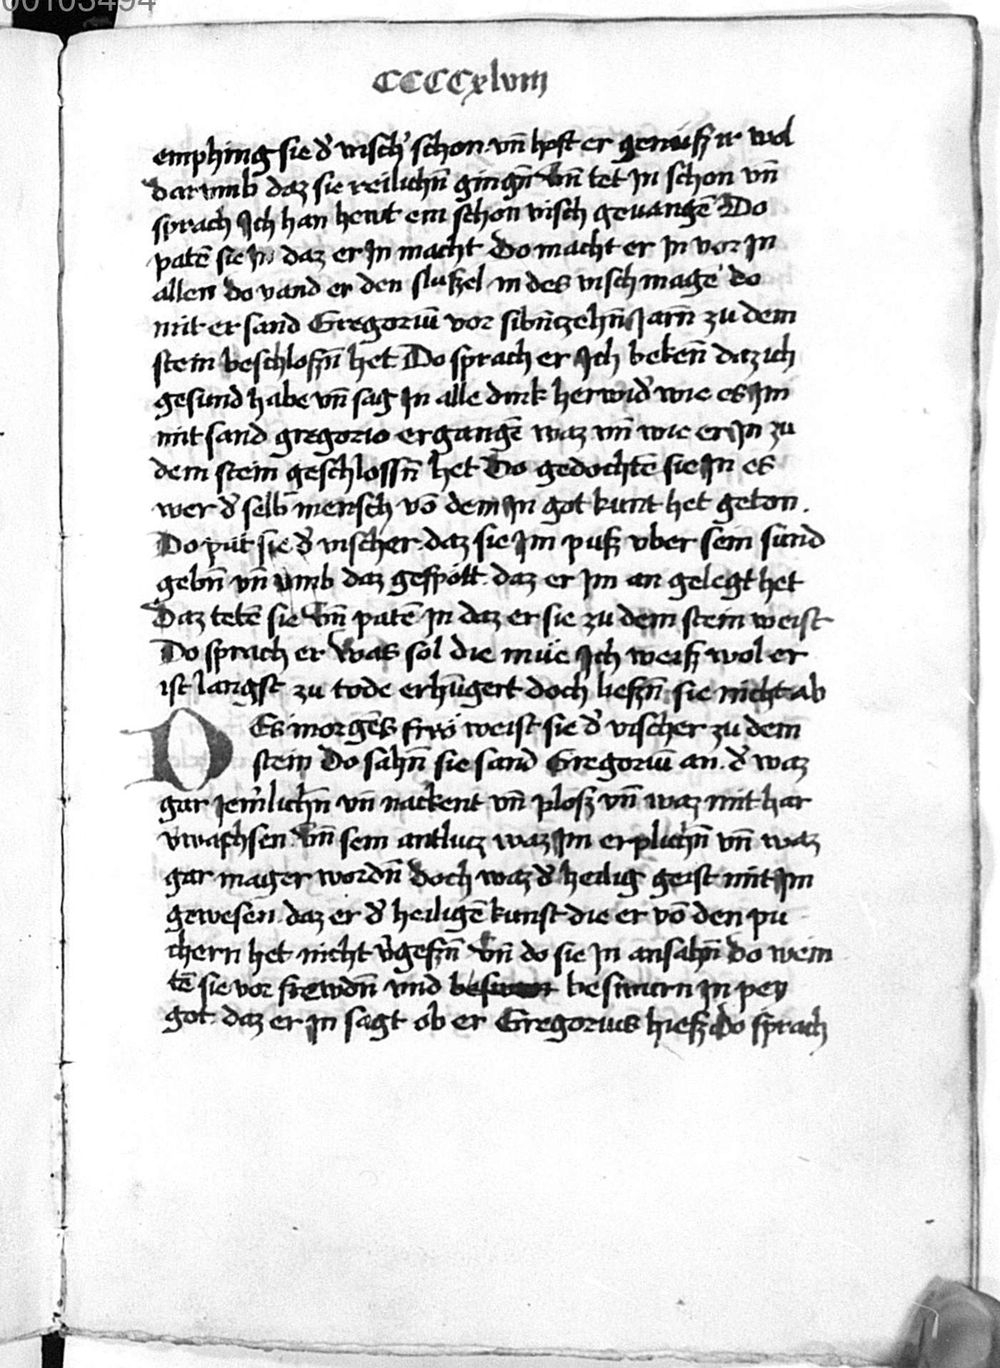 00103494
CCCCxlviii
emphing sie d̕ visch̕ schon. vn̄ hoft er genüsz ir wol
darvmb daz sie reilichn̄ gingn̄ Vn̄ tet In schon vn̄
sprach Ich han hewt ein schon visch geuangē Do
patē sie In daz er In macht Do macht er In vor In
allen do vand er den slußel in des visch magē do
mit er sand Gregoriū vor sibn̄czehn̄ Jarn̄ zu dem
stein beschloßn̄ het Do sprach er Ich beken̄ daz ich
gesund habe vn̄ sag In alle dink herwid̕ wie es Im
mit sand gregorio ergangē waz vn̄ wie er In zu
dem stein geschlossn̄ het Do gedochtē sie In es
wer d̕ selb mensch vō dem In got kunt het geton.
Do püt sie d̕ vischer. daz sie Im pusz vber sein sund
gebn̄ vn̄ vmb daz gespött. daz er Im an gelegt het
Daz tetē sie Vn̄ patē In daz er sie zu dem stein weist
Do sprach er Was sol die müe Ich weisz wol er
ist langst zu tode erhūgert doch lieszn̄ sie nicht ab
DEs morgēs frwͦ weist sie d̕ vischer zu dem
stein Do sahn̄ sie sand Gregoriū an. d̕ waz
gar Jem̕lichn̄ vn̄ nackent vn̄ plosz vn̄ waz mit har
v̕wachsen. Vn̄ sein antlucz waz Im erplichn̄ vn̄ waz
gar mager wordn̄ Doch waz d̕ heilig geist mit Im
gewesen. daz er d̕ heiligē kunst die er vō den pu
chern het nicht v̕geszn̄ Vn̄ do sie In ansahn̄ Do wein
tē sie vor frewdn̄ vnd beswurn In pey
got. daz er In sagt ob er Gregorius hiesz Do sprach